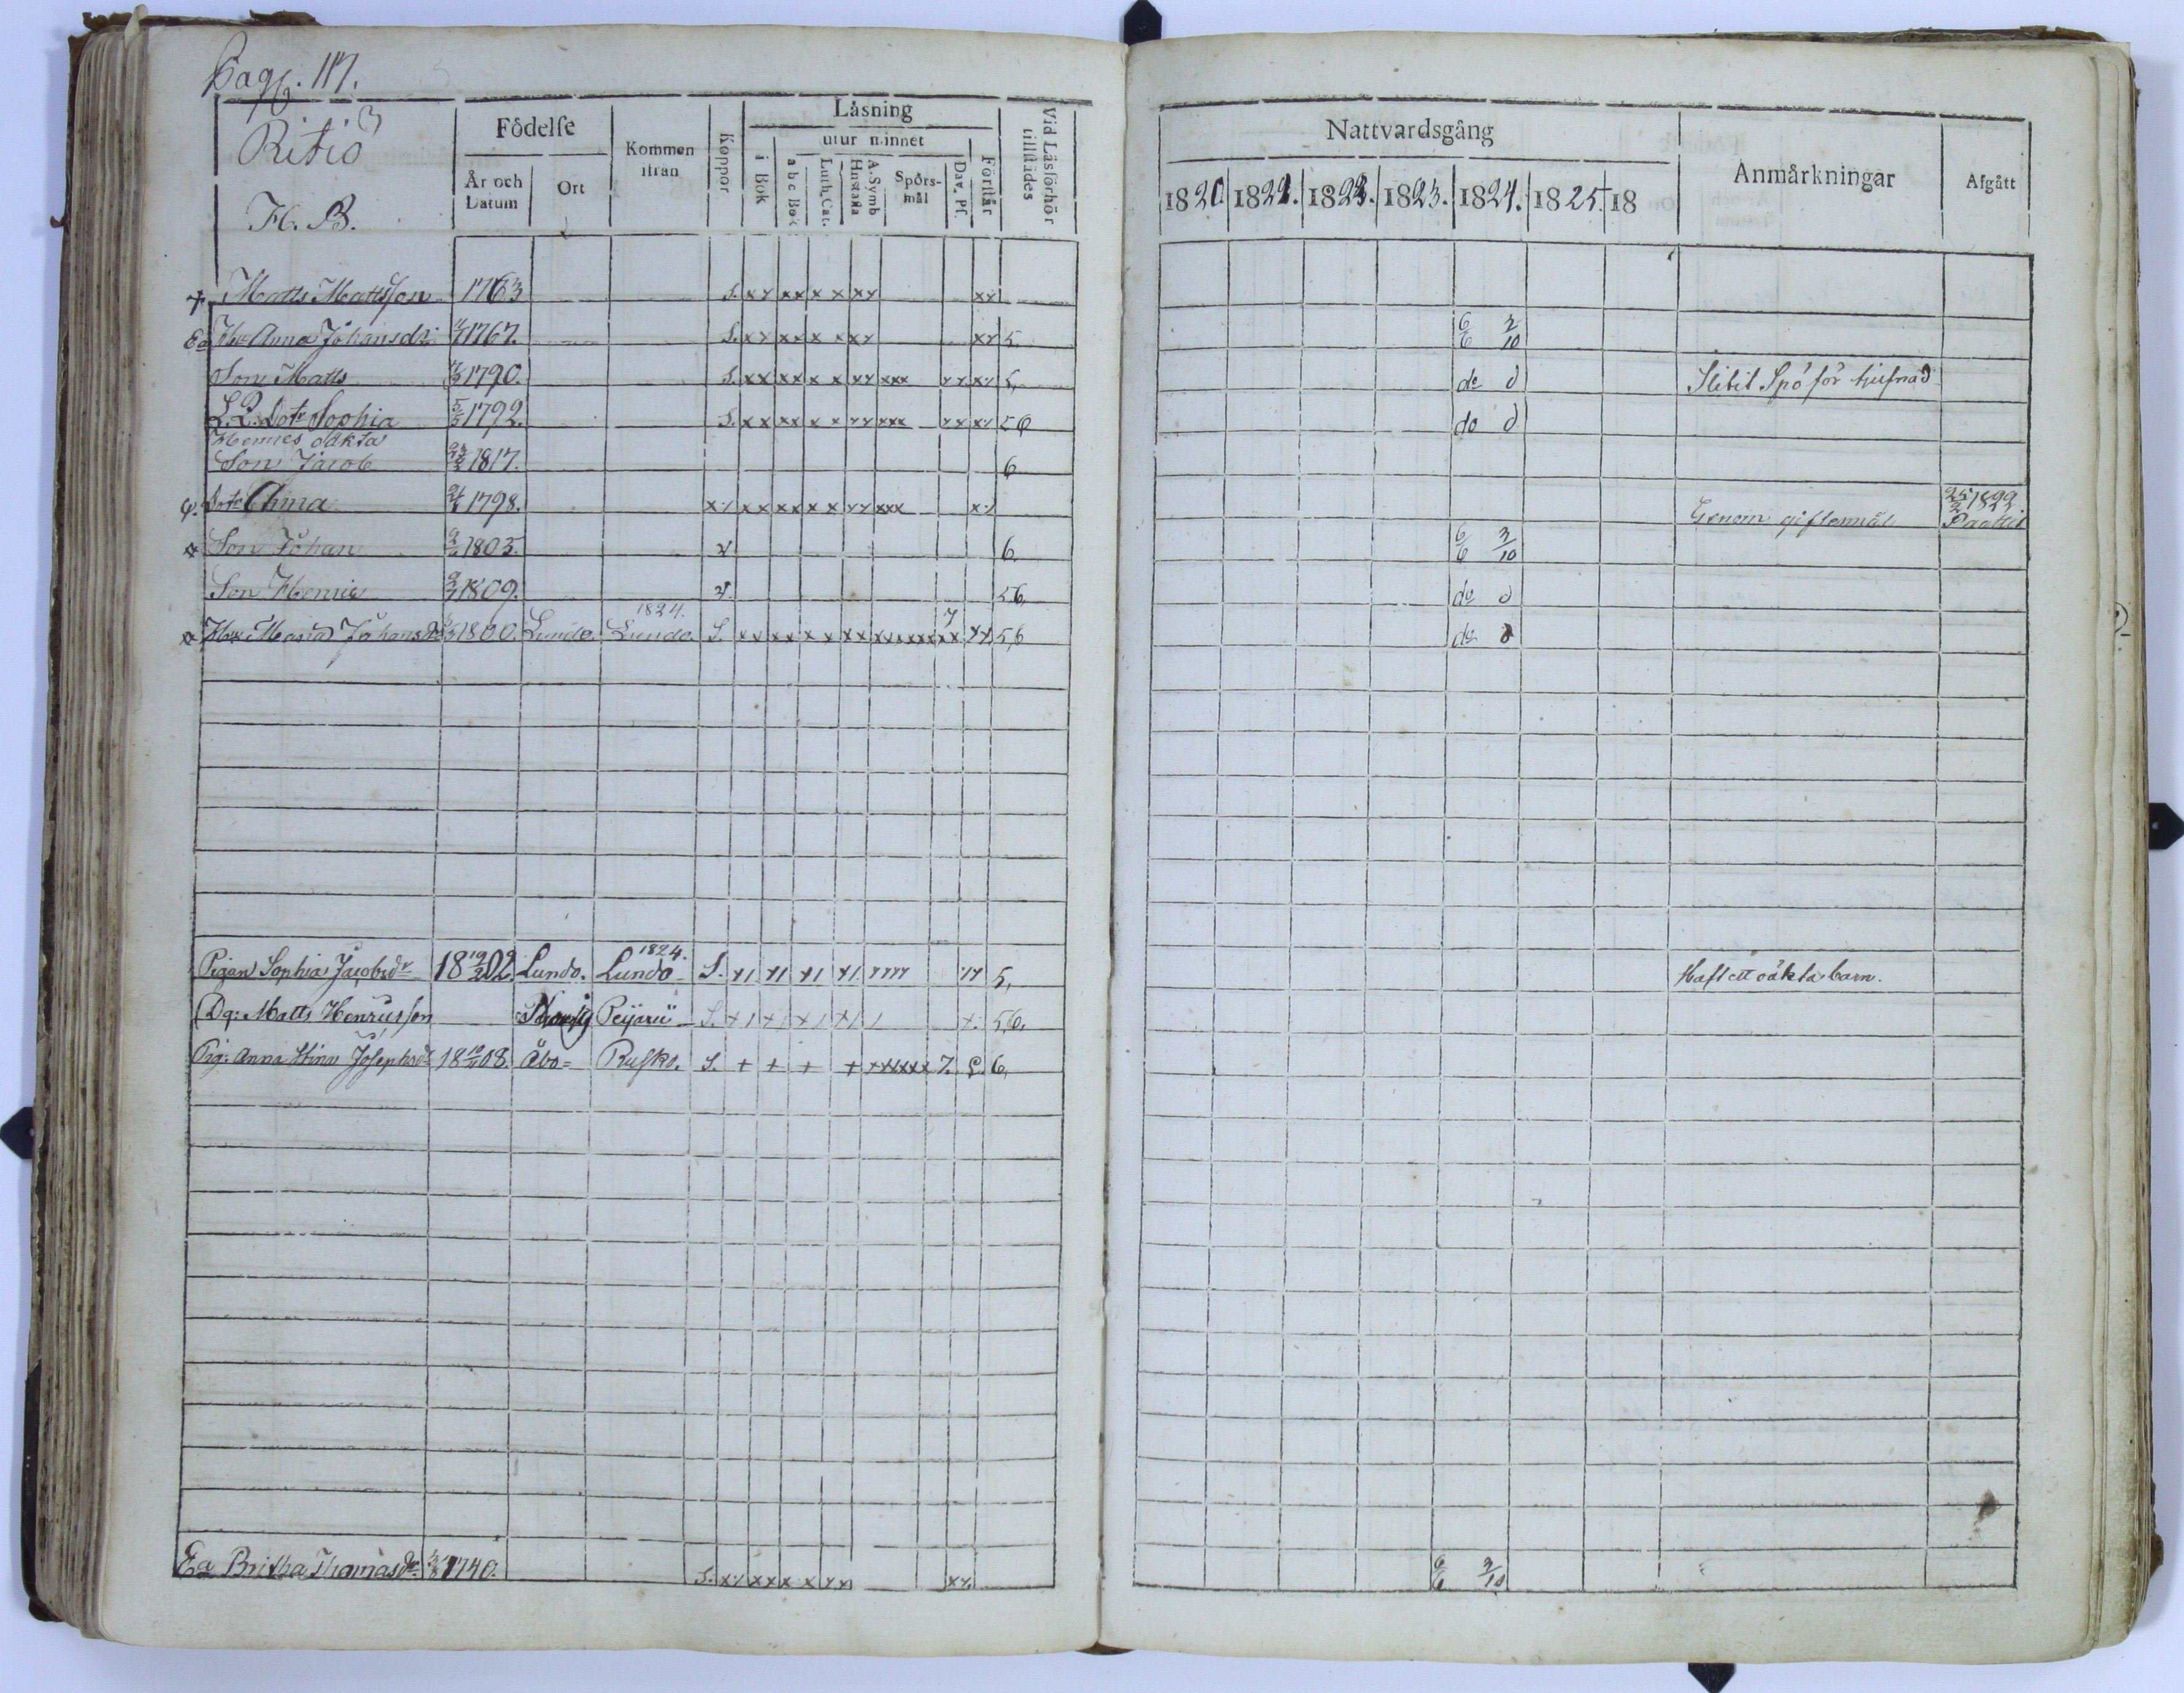 Pag. 117.
Ritiö
H. B.
Födelse
År och Datum
Ort
Kommen ifrån
Koppor
Läsning
utur minnet
i Bok
a b c Bok
Luth. Cat.
Hustafla
A. Symb
Spörsmål
Dav. Ps.
Förstår
Vid Läsförhör tillstädes
Nattvardsgång
1820. 1821. 1822. 1823. 1824. 1825. 18
Anmärkningar
Afgått
Matts Mattsson 1763 S. xx xx x x xx xx
Ea Hu Anna Johansdr 1767. S. xx xx x x xx xx 5. 6/6 2/10
Son Matts 1790. S. xx xx x x xx xxx xx xx 5, do d Slitit Spö för tjufnad
Dotr Sophia 5/5 1792. S. xx xx x x xx xxx xx xx 56 do d
Hennes oäkta
Son Jacob 1817. 6
Dotr Anna 1798. xx xx x x xxx Genom giftermål 1822
Son Johan 1803. 6. 6/6 3/10
Son Henric 1809. 56, do d
Hu Maria Johansdr 1800. Lundo. 1824. Lundo. S. xx xx x x xx xxxxxxx 7 xx 56 do d
Pigan Sophia Jacobsdr 18 19/2 02. Lundo. 1824. Lundo S. 5, Haft ett oäkta barn.
Dg: Matts Henricsson S. 5,6.
Pig: Anna Stina Josephsdr 18 08. Åbo= Rusko. S. + + + + 7. 6,
Ea Britha Thomasdr 1740. S. xx xx x x xx xx 6/6 3/10